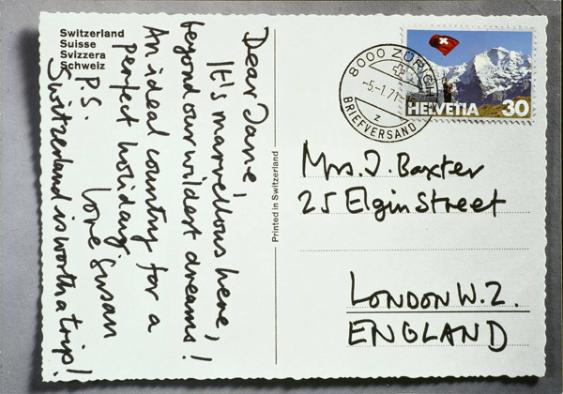 Switzerland
Suisse
Svizzera
Schweiz
Dear Jane,
It's marvellous here,
beyond our wildest dreams!
An ideal country for a
perfect holiday
love Susan
P.S.
Switzerland is worth a trip!
Printed in Switzerland
8000 ZÜRICH
-5.-1.71-
z
BRIEFVERSAND
HELVETIA 30
Mrs. J. Baxter
25 Elgin Street
LONDON W.2.
ENGLAND